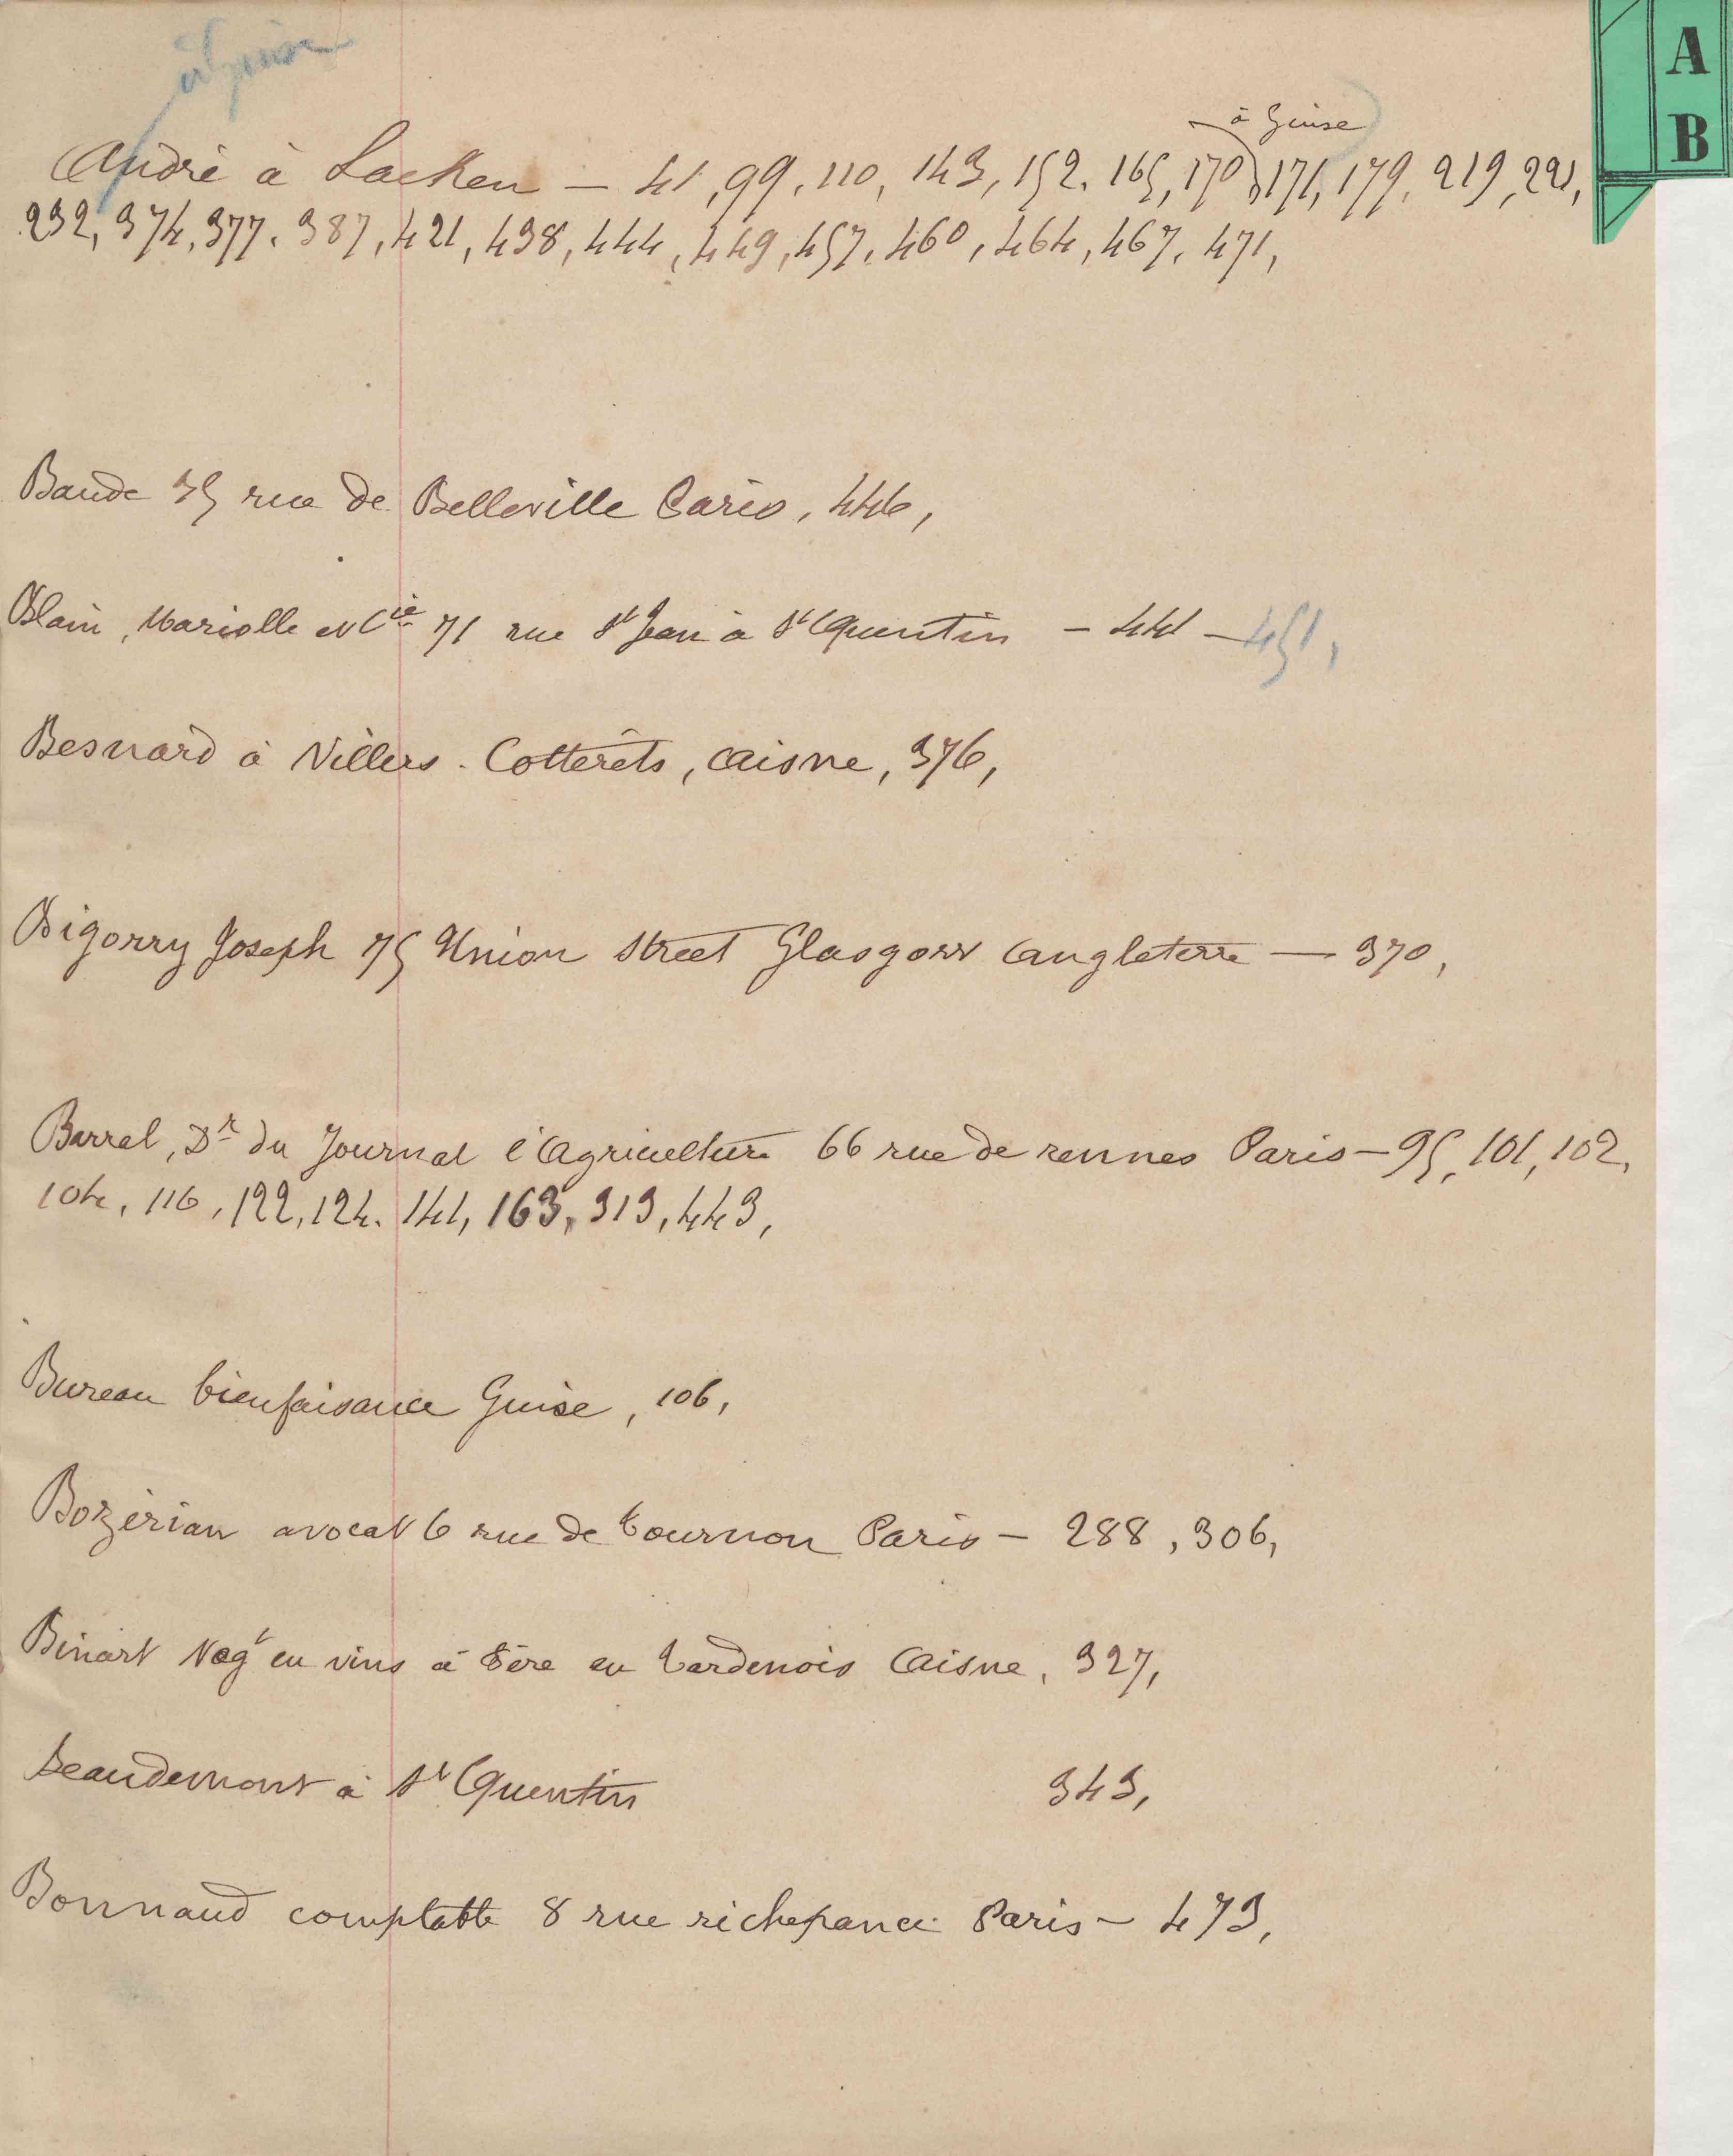 A
B
à Guise
à Guise
André à Laeken – 41, 99, 110, 143, 152, 165, 170, 171, 179, 219, 221,
232, 374, 377, 387, 421, 438, 444, 449, 457, 460, 464, 467, 471,
Baude 35 rue de Belleville Paris, 446,
Blain, Mariolle et Cie 71 rue St Jean à St Quentin – 441 – 451,
Besnard à Villers-Cotterêts, Aisne, 376,
Bigorry Joseph 75 Union Street Glasgow Angleterre — 370,
Barral, Dr du Journal l'Agriculture 66 rue de rennes Paris – 95, 101, 102,
104, 116, 122, 124, 141, 163, 313, 443,
Bureau bienfaisance Guise, 106,
Bozérian avocat 6 rue de Tournon Paris – 288, 306,
Binart Negt en vins à Fère en Tardenois Aisne, 327,
Beaudemont à St Quentin 343,
Bonnaud comptable 8 rue richepance Paris – 473,